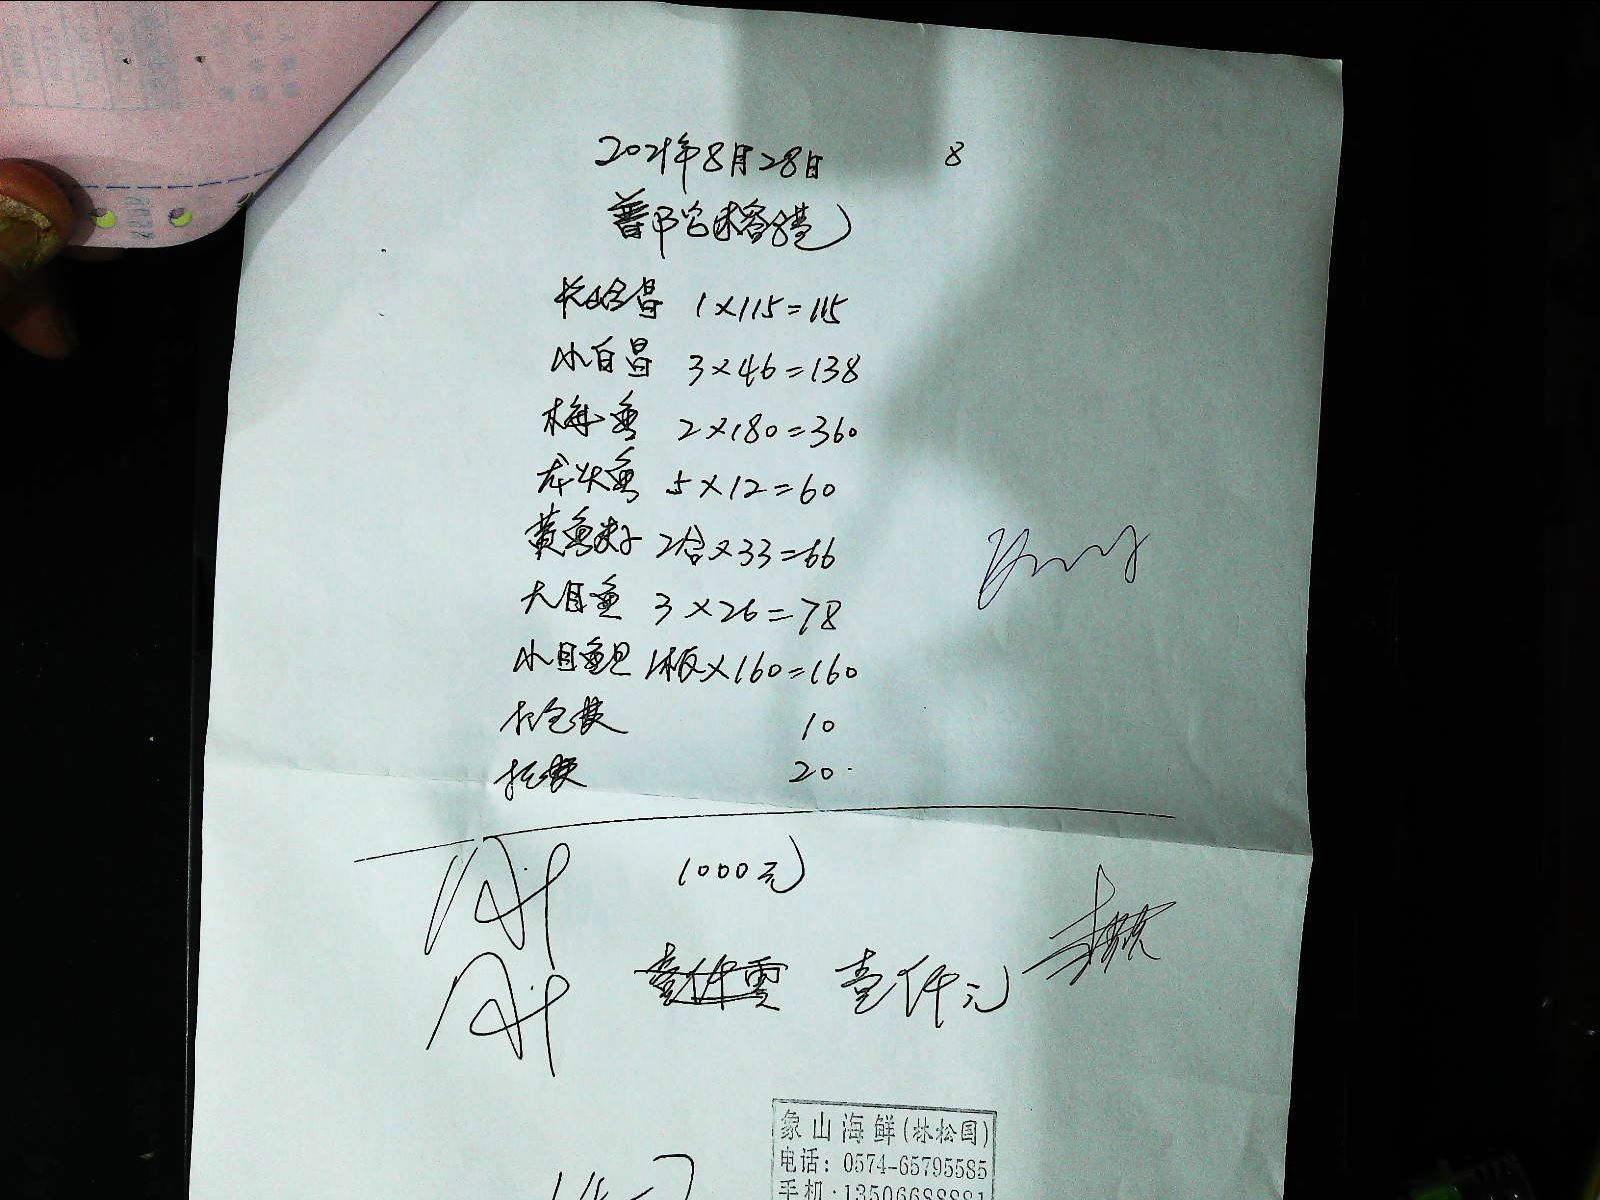 2021年8月28日 8
长蛤昌 1×115=115
小白昌 3×46=138
梅鱼 2×180=360
龙头鱼 5×12=60
黄鱼 2合×33=66
大目鱼 3×26=78
小目鱼旦 1板×160=160
打包费 10
20
1000元
壹仟元
象山海鲜(林松国)
电话: 0574-65795585
手机:13506688881